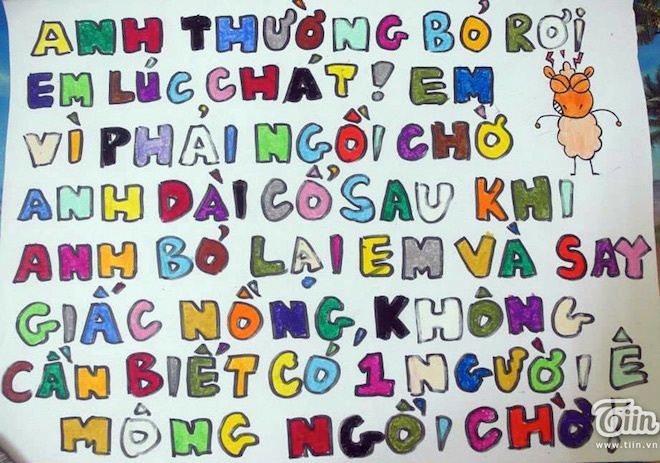 ANH THƯỜNG BỎ RƠI
EM LÚC CHÁT! EM
VÌ PHẢI NGỒI CHỜ
ANH DÀI CỔ SAU KHI
ANH BỎ LẠI EM VÀ SAY
GIẤC NỒNG, KHÔNG
CẦN BIẾT CÓ 1 NGƯỜI Ê
MÔNG NGỒI CHỜ?
Tiin
www.tiin.vn